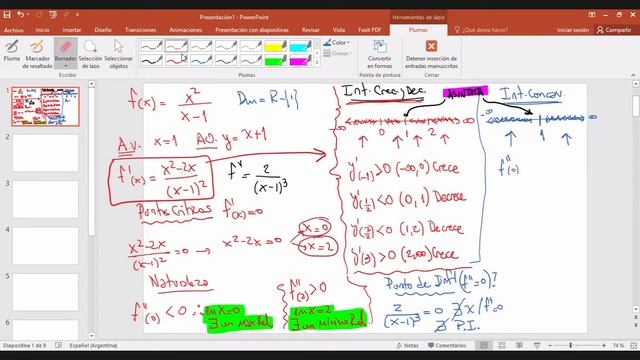 Presentación1 - PowerPoint
Herramientas de lápiz
Insertar
Diseño
Transiciones
Animaciones
Presentación con diapositivas
Revisar
Vista
Foxit PDF
Plumas
Iniciar sesión
Compartir
Pluma
Marcador de resaltado
Borrador
Selección de lazo
Seleccionar objetos
Color
Grosor
Convertir en formas
Detener inserción de entradas manuscritas
Plumas
Paleta de pintura
Cerrar
1
2
3
4
5
6
f(x) = x²/(x-1) Dom = R-{1}
A.V. x=1 A.O. y=x+1
f'(x) = (x²-2x)/(x-1)² f'' = 2/(x-1)³
Puntos Críticos f'(x)=0
(x²-2x)/(x-1)² = 0 → x²-2x=0 x=0 x=2
Naturaleza
f''(0) < 0 ∴ en x=0 ∃ un Max Rel
f''(2) > 0 en x=2 ∃ un minimo Rel
Int. Crec y Dec.
ASINTOTA
-∞ 0 1 2 ∞
y'(-1) > 0 (-∞,0) Crece
y'(1/2) < 0 (0,1) Decrece
y'(3/2) < 0 (1,2) Decrece
y'(3) > 0 (2,∞) Crece
Int. Concav.
-∞ 1 ∞
f''(0)
Punto de Inf (f''=0)?
2/(x-1)³ = 0 ∄ x / f''=0
∄ P.I.
Diapositiva 1 de 9
Español (Argentina)
Notas
Comentarios
74 %